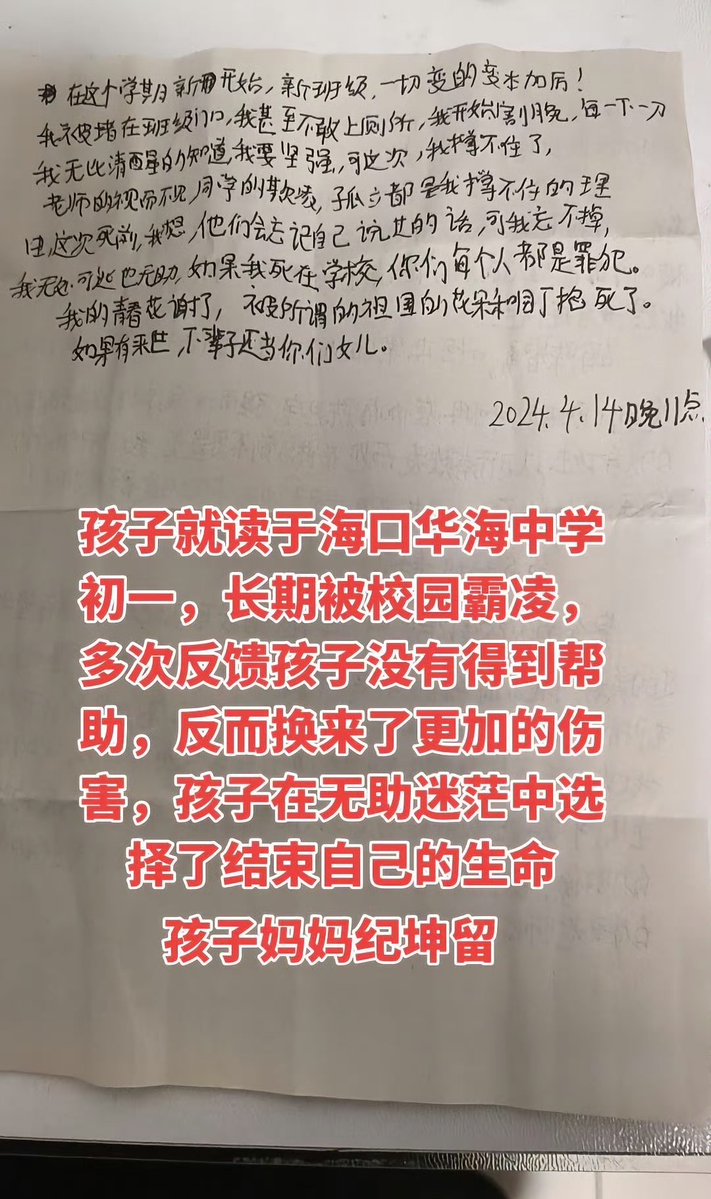 在这个学期新开始，新班级，一切变的变本加厉！
我被堵在班级门口，我甚至不敢上厕所，我开始割腕，每一下一刀
我无比清醒的知道，我要坚强，可这次，我撑不住了，
老师的视而不见，同学的欺凌，孤立都是我撑不住的理
由，这次死前，我想，他们会忘记自己说过的话，可我忘不掉，
可悲也无助，如果我死在学校，你们每个人都是罪犯。
我的青春花谢了，被所谓的祖国的花朵和园丁掐死了。
如果有来世，下辈子还当你们女儿。
2024.4.14晚11点
孩子就读于海口华海中学
初一，长期被校园霸凌，
多次反馈孩子没有得到帮
助，反而换来了更加的伤
害，孩子在无助迷茫中选
择了结束自己的生命
孩子妈妈纪坤留